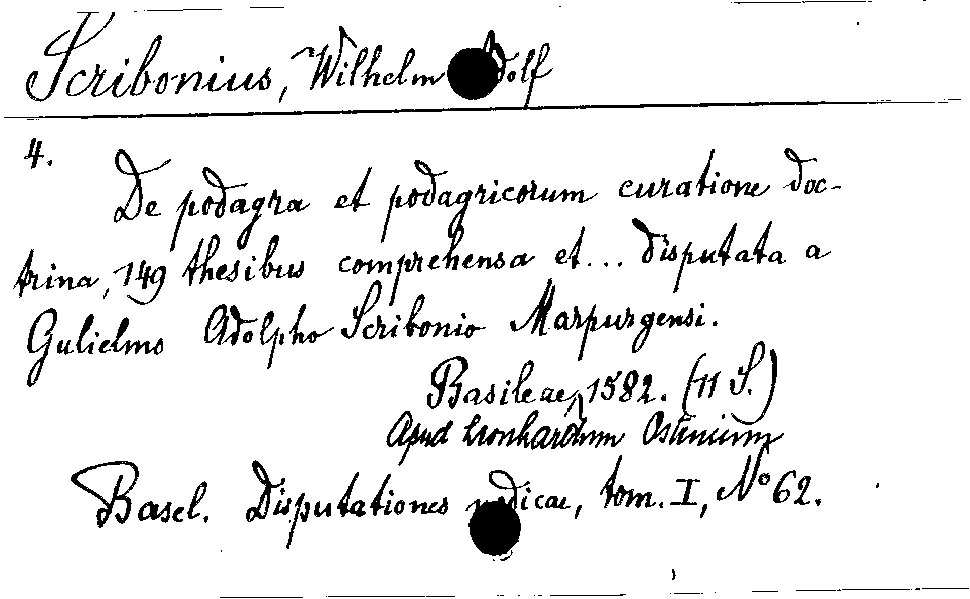 Scribonius, Wilhelm Adolf
4.
De podagra et podagricorum curatione doc-
trina, 149 thesibus comprehensa et... disputata a
Gulielmo Adolpho Scribonio Marpurgensi.
Basileae, 1582. (11 S.)
Apud Leonhardum Ostenium
Basel. Disputationes medicae, tom. I, No 62.